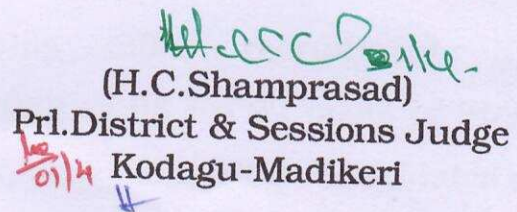 (H.C.Shamprasad)
Prl.District & Sessions Judge
Kodagu-Madikeri